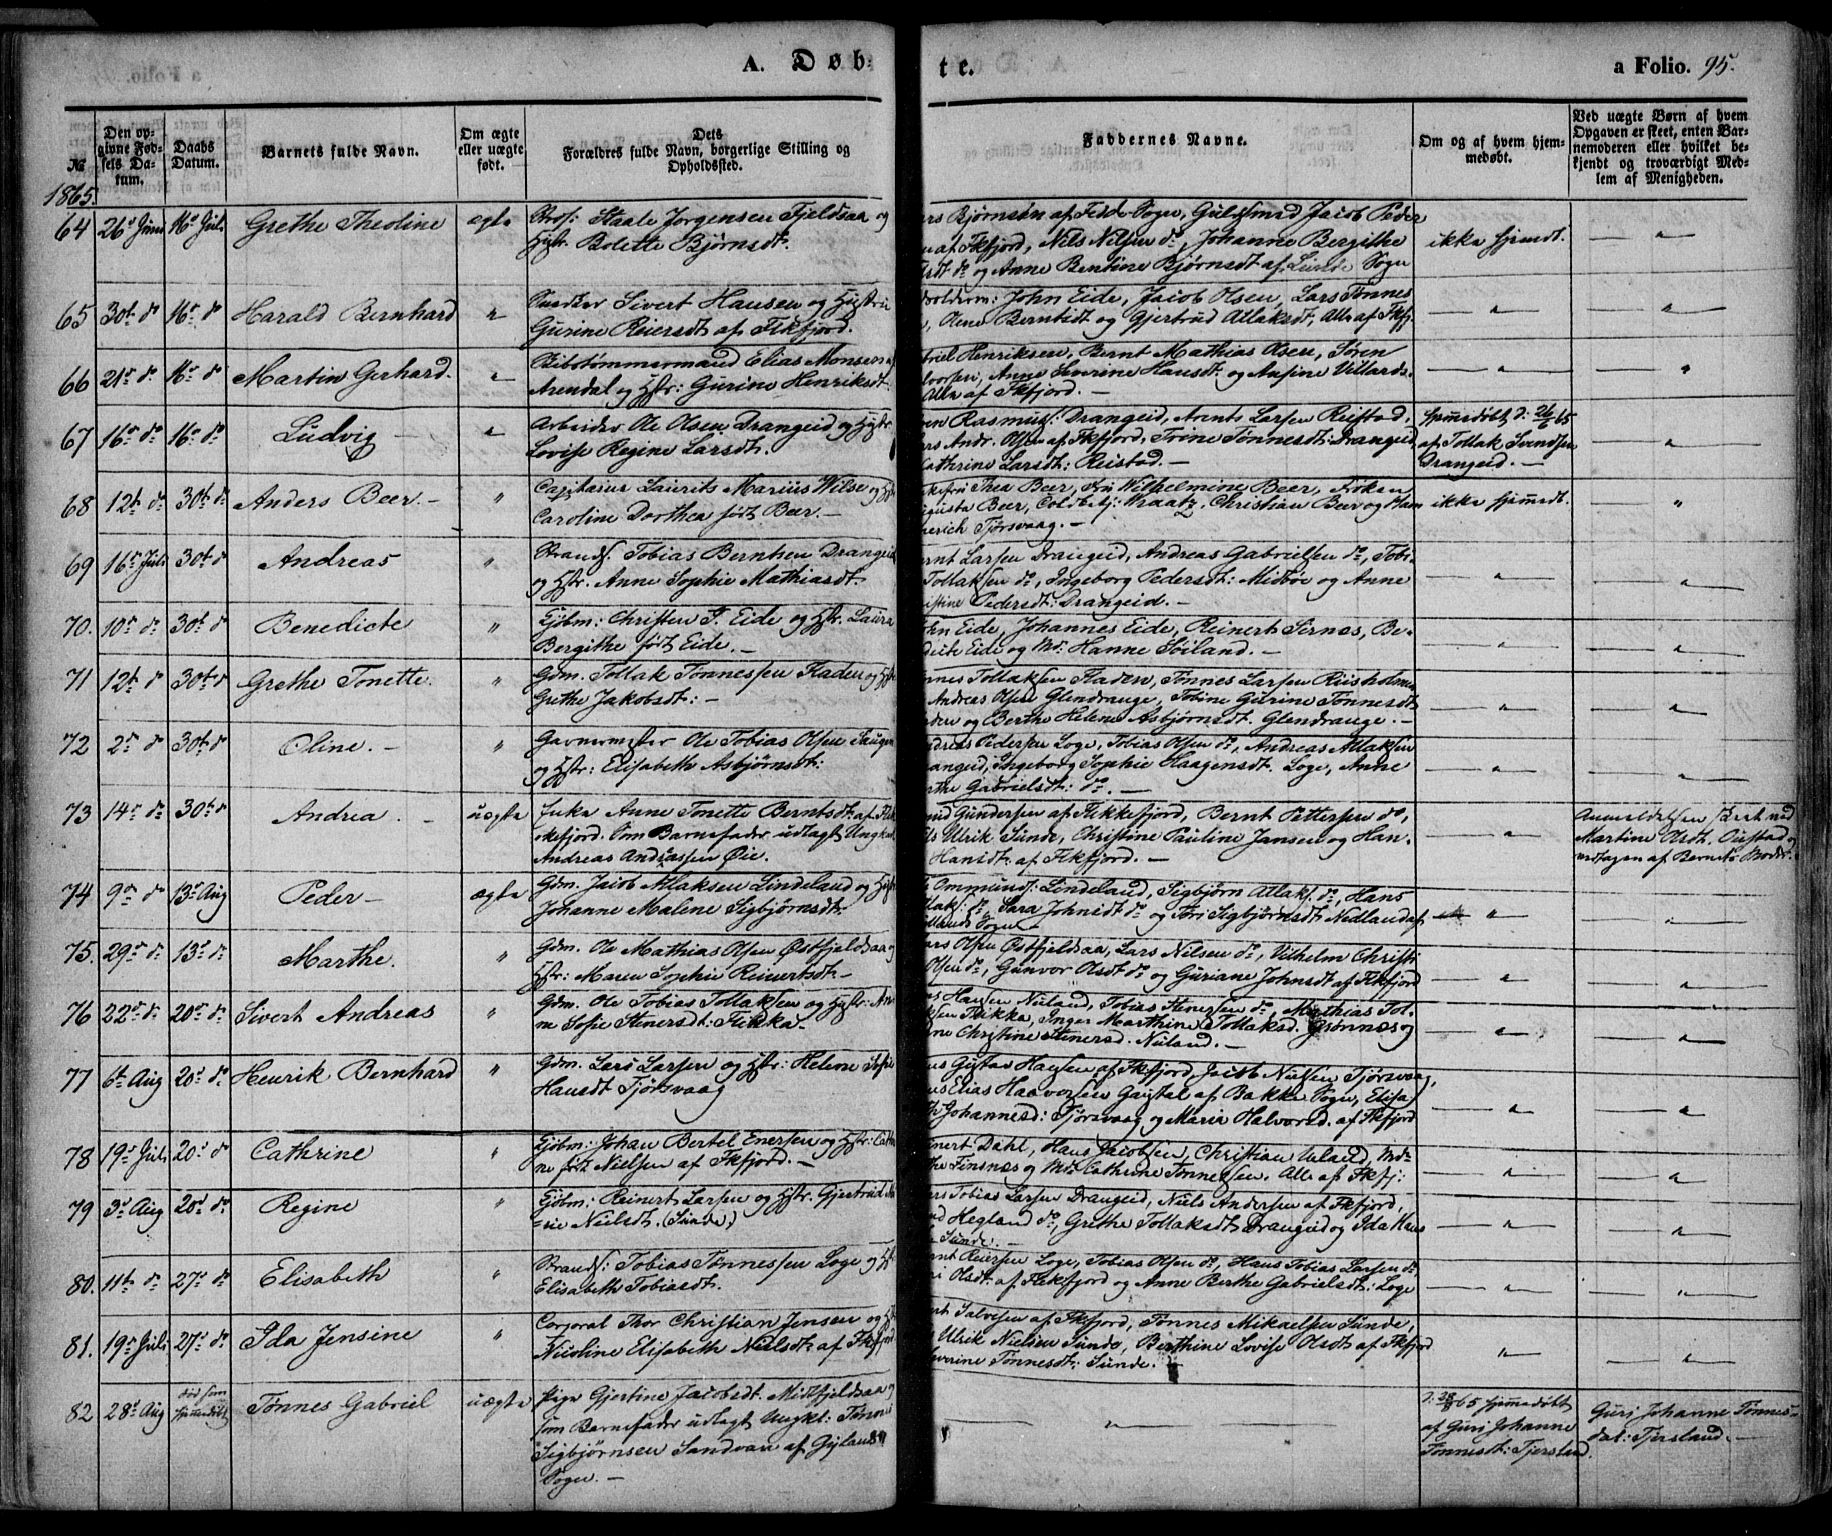 A. Døb-
te.
a Folio. 95.
No
Den op-
givne Fød-
sels Da-
tum.
Daabs
Datum.
Barnets fulde Navn.
Om ægte
eller uægte
født.
Dets
Forældres fulde Navn, borgerlige Stilling og
Opholdssted.
Faddernes Navne.
Om og af hvem hjem-
medøbt.
Ved uægte Børn af hvem
Opgaven er skeet, enten Bar-
nemoderen eller hvilket be-
kjendt og troværdigt Med-
lem af Menigheden.
1865.
64 26de Juni 16de Juli Grethe Theoline ægte Staale Jørgensen Fjeldsaa og
Hstr. Bolette Bjørnsdt.
Bjørnsøn af Fede Sogn, Guldsmed Jacob Peder
af Fkfjord, Nils Nilsen do, Johanne Bergithe
do og Anne Bentine Bjørnsdt af Lunde Sogn
ikke hjemdt. — " —
65 30te do 16de do Harald Bernhard " Snedker Sivert Hansen og Hustru
Gurine Reiersdt af Fkfjord.
John Eide, Jacob Olsen, Lars Tønnes
Olene Berntsdt og Gjertrud Atlaksdt, Alle af Fkfj.
— " — — " —
66 21de do 16de do Martin Gerhard. " Skibstømmermand Elias Monsen af
Arendal og Hstr: Gurine Henriksdt.
Henriksen, Bernt Mathias Olsen, Søren
Anne Severine Hansdt og Ansine Villards.
Alle af Fkfjord.
— " — "
67 16de do 16de do Ludvig — " Arbeider Ole Olsen Drangeid og Hustr.
Lovise Regine Larsdt.
Rasmus: Drangeid, Arent Larsen Reistad,
Andr. Olsen af Fkfjord, Trine Tønnesdt: Drangeid
Cathrine Larsdt: Reistad. —
hjemmedøbt d: 26/6 65
af Tollak Svendsen
Drangeid. —
— " —
68 12te do 30te do Anders Beer. — " Capitain Laurits Marius Wilse og Hstr
Caroline Dorthea født Beer. —
Thea Beer, Frk Wilhelmine Beer, Frøken
Augusta Beer, Kraatz, Christian Beer og Ham
merich Tjørsvaag. —
ikke hjemmedt. "
69 16de Juli 30te do Andreas " Strands. Tobias Berntsen Drangeid
og Hstr. Anne Sophie Mathiasdt.
Larsen Drangeid, Andreas Gabrielsen do, Tobi-
Tollaksen do, Ingeborg Pedersdt: Midbøe og Anne
Pedersdt: Drangeid. —
— " — — " —
70. 10de do 30te do Benedicte " Kjøbm: Christen S. Eide og Hstr. Laura
Bergithe født Eide. —
John Eide, Johannes Eide, Reinert Sirnæs, Be-
Eide og Md: Hanne Søiland. —
— " — — " —
71 12te do 30te do Grethe Tonette. " Gdm. Tollak Tønnessen Fladen og Hstr
Grethe Jakobsdt: —
Tollaksen Fladen, Tønnes Larsen Riisholmen
Andreas Olsen Glendrange, Tobine Gurine Tønnesdt
og Berthe Helene Asbjørnsdt. Glendrange. —
— " — — " —
72 2de do 30te do Oline. — " Garvermester Ole Tobias Olsen Haugen
og Hstr: Elisabeth Asbjørnsdt:
Pedersen Loge, Tobias Olsen do, Andreas Atlaksen
Drangeid, Ingeborg Sophie Haagensdt. Loge, Anne
Gabrielsdt: do. —
— " — — " —
73 14de do 30te do Andrea. — uægte Enke Anne Tonette Berntsdt. af Flek
kefjord. Som Barnefader udlagt Ungkarl
Andreas Andreassen Øie.
Gundersen af Flekkefjord, Bernt Pettersen do,
Ulrik Sunde, Christine Pauline Jansen og Han-
Hansdt. af Fkfjord. —
— " —
Anmeldelsen
Martine Olsdt.
modtagen af Barnets Moder.
74 9de do 13de Aug Peder — ægte Gdm. Jacob Atlaksen Lindeland og Hstr
Johanne Malene Sigbjørnsdt.
Ommunds: Lindeland, Sigbjørn Atlaks. do, Hans
do, Sara Johnsdt do og Tori Sigbjørnsdt Nedland af
Sogn. —
" — " —
75. 29de do 13de do Marthe. " Gdm. Ole Mathias Olsen Østfjeldsaa og
Hstr: Maren Sophie Reinertsdt. —
Olsen Østfjeldsaa, Lars Nielsen do, Vilhelm Christi
Olsen do, Gunvor Olsdt do og Guriane Johnsdt af Fkfjord
— " — — " —
76 22de do 20de do Sivert Andreas " Gdm. Ole Tobias Tollaksen og Hstr: An
ne Sofie Stenersdt: Flikka. —
Hansen Nuland, Tobias Stenersen do, Mathias Tol-
Flikka, Inger Marthine Tollaksd. Grønnæs og
Christine Stenersd. Nuland. —
— " — — " —
77 6te Aug 20de do Henrik Bernhard " Gdm. Lars Larsen og Hstr: Helene Sofie
Hansdt Tjørsvaag
Gustav Hansen af Fkfjord, Jacob Nielsen Tjørsvaag,
Elias Haavorsen Gaustal af Bakke Sogn, Elisa
Johannesd: Tjørsvaag og Marie Halvorsd. af Fkfjord
— " — — " —
78 19de Juli 20de do Cathrine " Kjøbm: Johan Bertel Enersen og Hstr: Cathri
ne født Nielsen af Fkfjord. —
Dahl, Hans Jacobsen, Christian Uland, Md:
Finsnæs og Md: Cathrine Tønnessen. Alle af Fkfj:
— " — — " —
79 3de Aug 20de do Regine " Kjøbm: Reinert Larsen og Hstr. Gjertrud
Nielsdt. (Sunde.)
Tobias Larsen Drangeid, Niels Andersen af Fkfjord,
Hegland do, Grethe Tollaksdt Drangeid og Ida Hans
Sunde. —
— " — — " —
80. 11te do 27de do Elisabeth " Strands: Tobias Tønnessen Loge og Hstr
Elisabeth Tobiasdt.
Reiersen Loge, Tobias Olsen do, Hans Tobias Larsen do,
Olsdt. af Flekfjord og Anne Berthe Gabrielsdt: Loge
— " — — " —
81. 19de Juli 27de do Ida Jensine " Corporal Thor Christian Jensen og Hstr
Nicoline Elisabeth Nielsdt. af Fkfjord
Salvesen af Fkfjord, Tønnes Mikaelsen Sunde,
Ulrik Nielsen Sunde, Berthine Lovise Olsdt af Fkfjord
Severine Tønnesdt: Sunde.
— " — — " —
82 28de Aug død som
hjemmedøbt Tønnes Gabriel uægte Pige Gjertine Jacobsdt. Midtfjeldsaa og
som Barnefader udlagt Ungkl: Tønnes
Sigbjørnsen Sandvan af Gyland
Sogn. —
— " —
d: 28/8 65 hjemmedøbt
af Guri Johanne
Tønnesdt: Tjersland.
Guri Johanne Tønnes-
dat: Tjersland. —